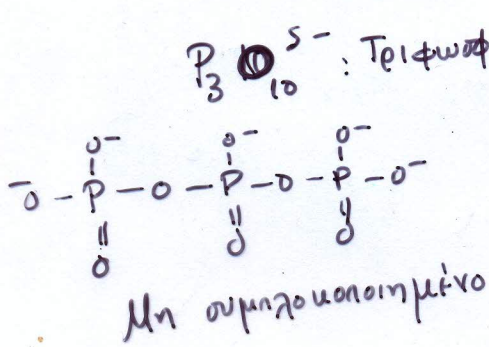 P₃O₁₀⁵⁻ : Τριφωσφ
O⁻ O⁻ O⁻
⁻O - P - O - P - O - P - O⁻
O O O
Μη συμπλοκοποιημένο